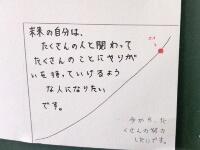 未来の自分は、
たくさんの人と関わって
たくさんのことにやりが
いを持っていけるよう
な人になりたい
です。
今から、た
くさんの努力
したいです。